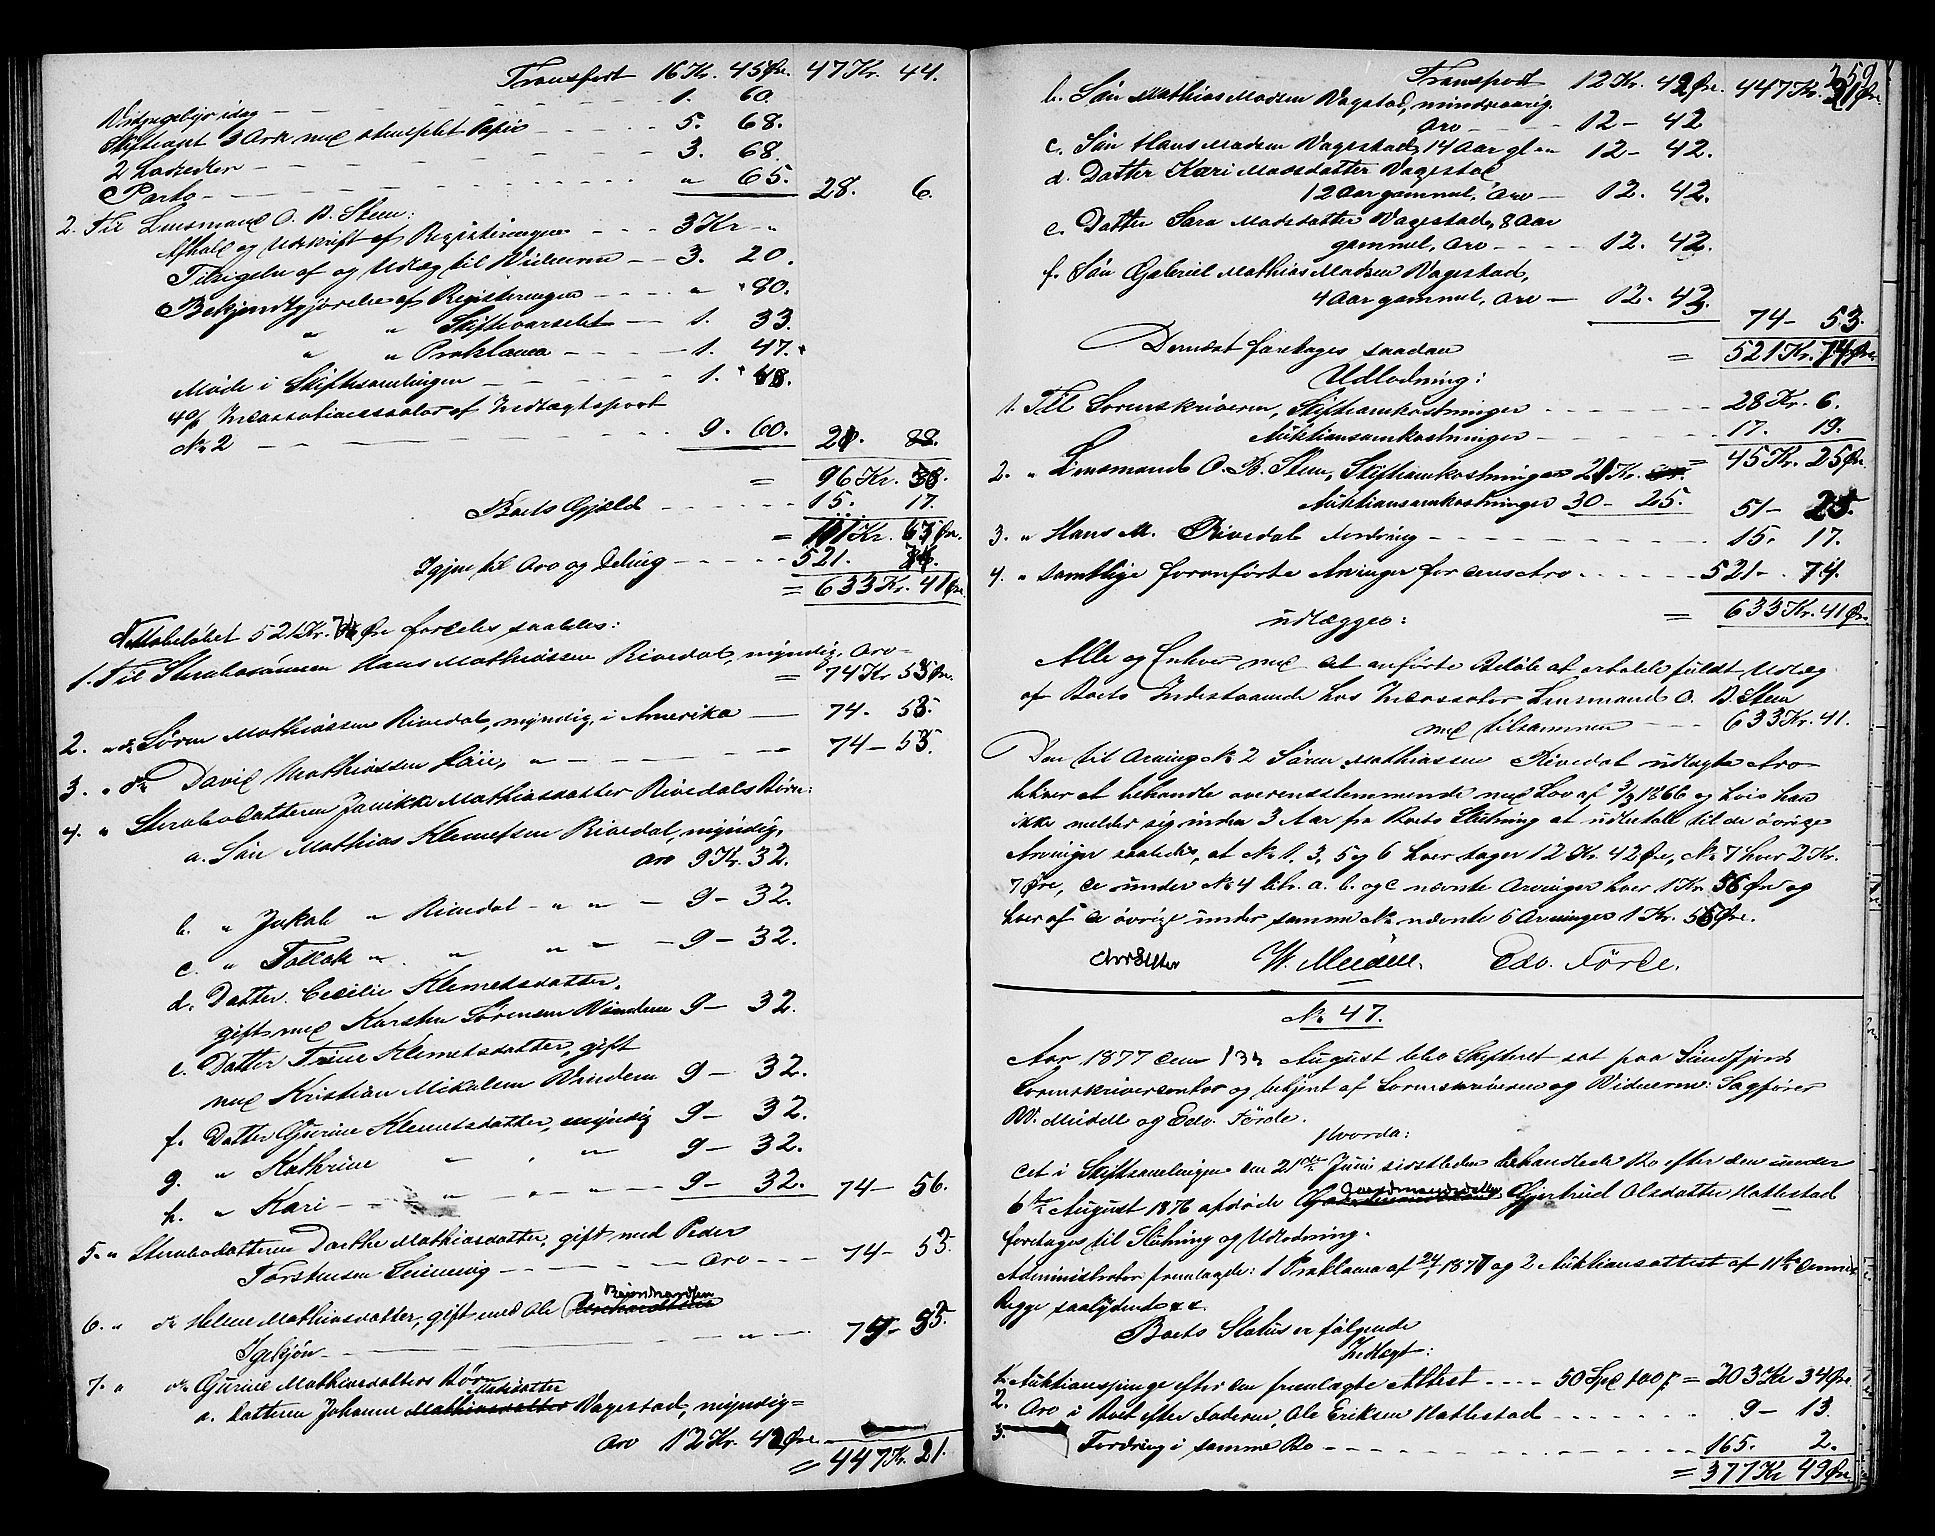 Transport 16 Kr. 45 Øre. 47 Kr. 44.
1. 60.
Skifteact 3 Ark med stemplet Papir - - - - 5. 68.
2 Lodsedler - - - 3. 68.
Porto - - - " 65. 28. 6.
2. Til Lensmand O. B. Steen:
Afhold og Udskrift af Registeringen - - - 3 Kr - "
Tilsigelse af og Udlæg til Vidnerne - - 3. 20.
Bekjendtgjørelse af Registeringen - - - " 80.
" " Skiftevarselet - - 1. 33.
" " Proklama - - - 1. 47.
Møde i Skiftesamlingen - - - 1. 48.
4 % Incassationssalær af Indtægtspost
No 2 - - - 9. 60. 21. 88.
= 96 Kr. 38.
Boets Gjæld - - - 15. 17.
= 111 Kr. 67 Øre.
Igjen til Arv og Deling - - - 521. 74.
= 633 Kr. 41 Øre.
Nettobeløbet 521 Kr. 74 Øre fordeles saaledes:
1. Til Sterbosønnen Hans Mathiassen Rivedal, myndig, Arv -
= 74 Kr 53 Øre.
2. " do Søren Mathiassen Rivedal, myndig, i Amerika — 74. 53.
3. " do David Mathiassen " - - - 74 - 53.
4. " Sterbodatteren Janikke Mathiasdatter Rivedals Børn:
a. Søn Mathias Klemetsen Rivedal, myndig,
Arv 9 Kr. 32.
b. " Jakob " Rivedal - " " - 9 - 32.
c. " " " " " - 9 - 32.
d. Datter Cecilie Klemetsdatter,
gift med Karsten Sørensen 9 - 32.
e. Datter Trine Klemetsdatter, gift
med Kristian Mikalsen 9 - 32.
f. Datter Gurine Klemetsdatter, myndig 9 - 32.
g. " Kathrine " " " 9 - 32.
h. " Kari - - " - " - " - 9 - 32. 74 - 56.
5. " Sterbodatteren Dorthe Mathiasdatter, gift med Peder
Torstensen - - - Arv - - 74 - 53.
6. " do Helene Mathiasdatter, gift med Ole Berntsen
- - - " - 74 - 53.
7. " do Gurine Mathiasdatters Børn
Madsdatter
a. Datteren Johanne Mathiasdatter Vagestad, myndig =
Arv 12 Kr. 42 Øre.
= 447 Kr. 21.
259
Transport 12 Kr. 42 Øre. 447 Kr. 21 Øre
b. Søn Mathias Madsen Vagestad, mindreaarig
Arv - - - 12 - 42
c. Søn Hans Madsen Vagestad, 14 Aar gl " 12 - 42.
d. Datter Kari Madsdatter Vagestad
12 Aar gammel, Arv — 12. 42.
e. Datter Sara Madsdatter Vagestad, 8 Aar
gammel, Arv - - - 12. 42.
f. Søn Gabriel Mathias Madsen Vagestad,
4 Aar gammel, Arv — 12. 42.
74 - 53.
Dernæst foretages saadan = 521 Kr. 74 Øre
Udlodning:
1. Til Sorenskriveren, Skifteomkostninger - - - 28 Kr. 6.
Auktionsomkostninger - - - 17. 19.
= 45 Kr. 25 Øre
2. " Lensmand O. B. Steen, Skifteomkostninger 21 Kr.
Auktionsomkostninger 30 - 25. 51 - 25.
3. " Hans M. Rivedal Fordring - - - 15. 17.
4. " samtlige foranførte Arvinger for deres Arv - - - 521 - 74.
= 633 Kr. 41 Øre.
udlægges:
Alle og Enhver med det anførte Beløb at erholde fuldt Udlæg
af Boets Indestaaende hos Incassator Lensmand O. B. Steen
med tilsammen - - 633 Kr. 41.
Den til Arving No 2 Søren Mathiassen Rivedal udlagte Arv
bliver at behandle overensstemmende med Lov af 3/3 1866 og hvis han
ikke melder sig inden 3 Aar fra Boets Slutning at udbetale til de øvrige
Arvinger saaledes, at No 1. 3, 5 og 6 hver tager 12 Kr. 42 Øre, No 7 hver 2 Kr.
7 Øre, de under No 4 litr. a. b. og c nævnte Arvinger hver 1 Kr. 56 Øre og
hver af de øvrige under samme No nævnte 5 Arvinger 1 Kr. 55 Øre.
W. Meidell. Edv. Förde.
No 47.
Aar 1877 den 13de August blev Skifteret sat paa Søndfjords
Sorenskrivercontor og betjent af Sorenskriveren og Vidnerne: Sagfører
W. Meidell og Edv. Förde.
Hvorda:
det i Skiftesamlingen den 21de Juni sidstleden behandlede Bo efter den under
6te August 1876 afdøde Gjertrud Olsdatter Hatlestad
foretages til Slutning og Udlodning.
Administrator fremlagde: 1 Proklama af 24/1 1877 og 2 Auktionsattest af 11te dennes
Begge saalydende &&
Boets Status er følgende
Indtægt:
1. Auktionspenge efter den fremlagte Attest - - - 50 Spd 100 ß = 203 Kr 34 Øre.
2. Arv i Boet efter Faderen, Ole Eriksen Hatlestad - - - 9 - 13.
3. Fordring i samme Bo - - - 165. 2.
= 377 Kr 49 Øre.